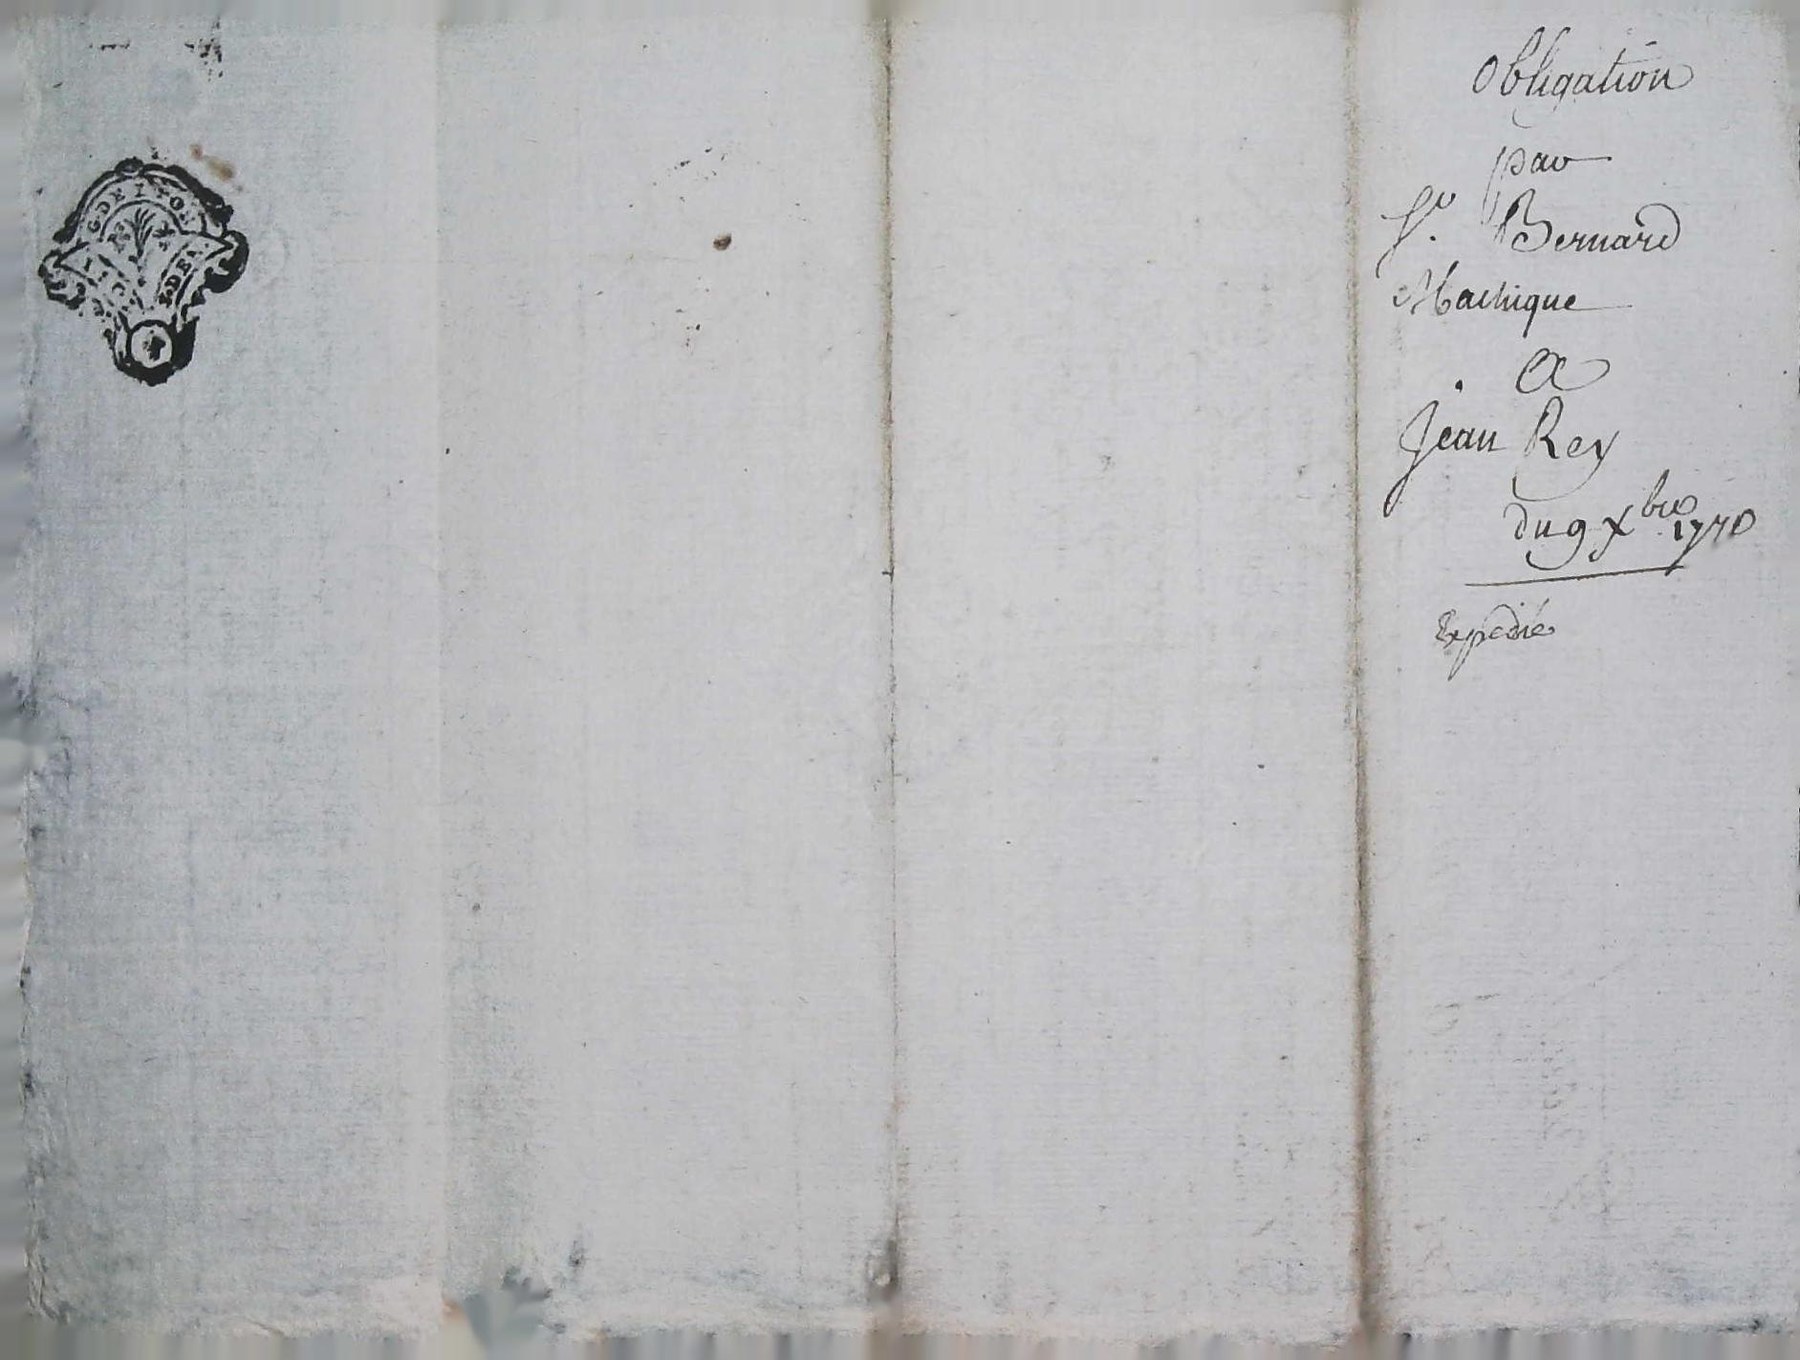 Obligation
par
Sr. Bernard
Machique
a
Jean Rey
du 9 Xbre 1770
Expedié
G DE LYON